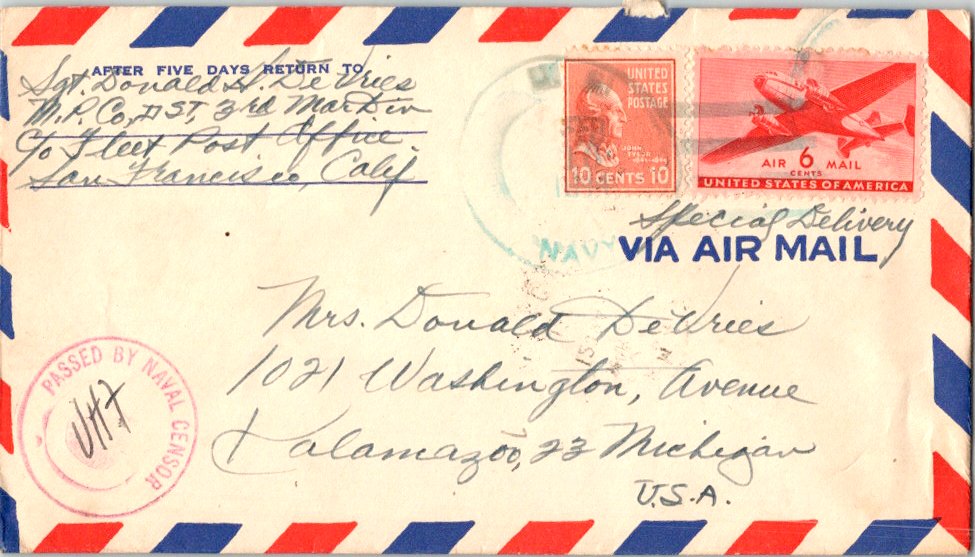 AFTER FIVE DAYS RETURN TO
Sgt. Donald H. De Vries
M.P. Co, 3rd Mar Div
C/o Fleet Post Office
San Francisco, Calif
UNITED
STATES
POSTAGE
JOHN
TYLER
1841-1845
10 CENTS 10
AIR 6 MAIL
CENTS
UNITED STATES OF AMERICA
NAVY
Special Delivery
VIA AIR MAIL
Mrs. Donald De Vries
1021 Washington, Avenue
Kalamazoo, 23 Michigan
U.S.A.
PASSED BY NAVAL CENSOR